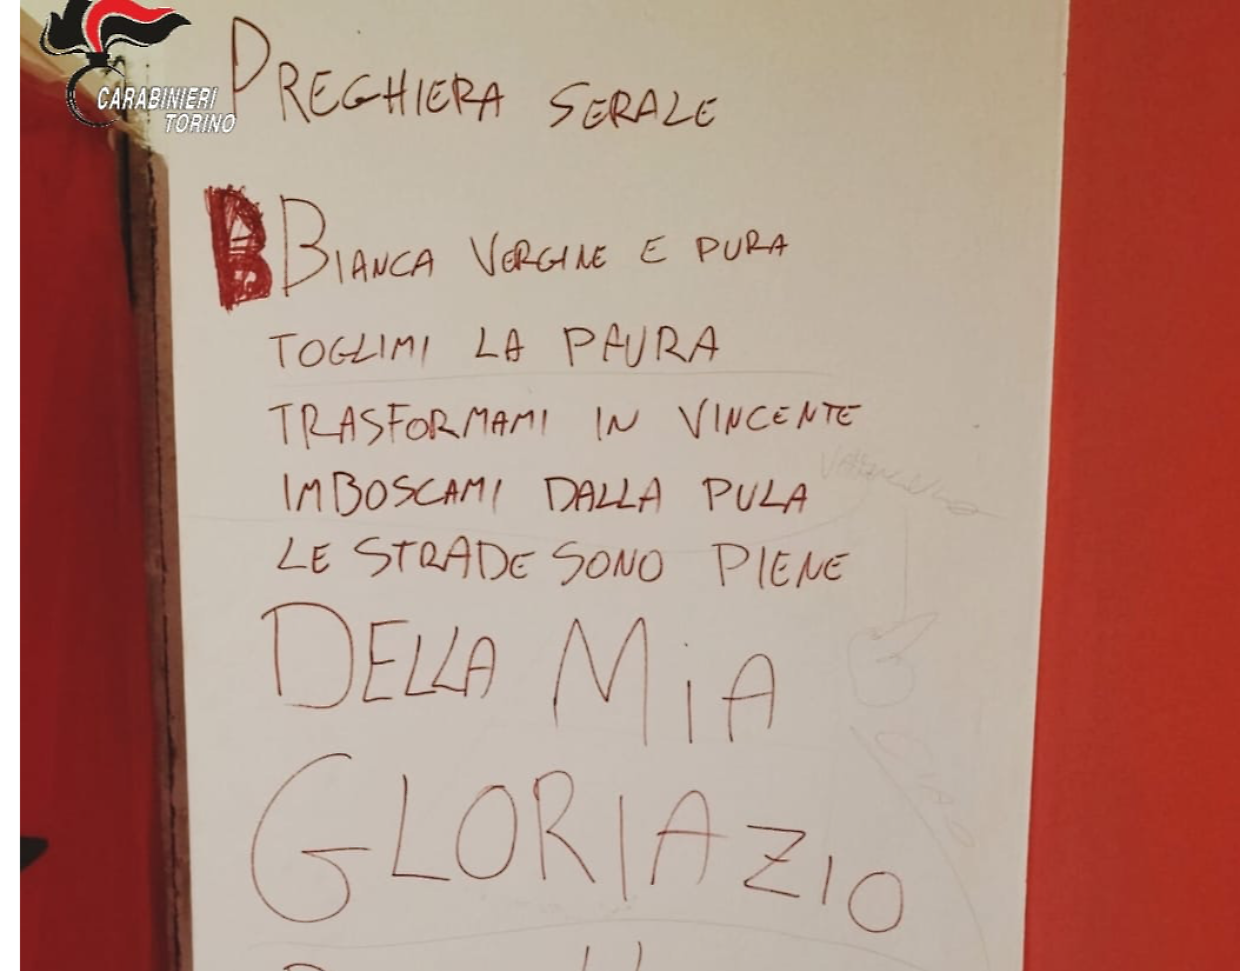 CARABINIERI
TORINO
PREGHIERA SERALE
B BIANCA VERGINE E PURA
TOGLIMI LA PAURA
TRASFORMAMI IN VINCENTE
IMBOSCAMI DALLA PULA
LE STRADE SONO PIENE
DELLA MiA
GLORIA ZIO